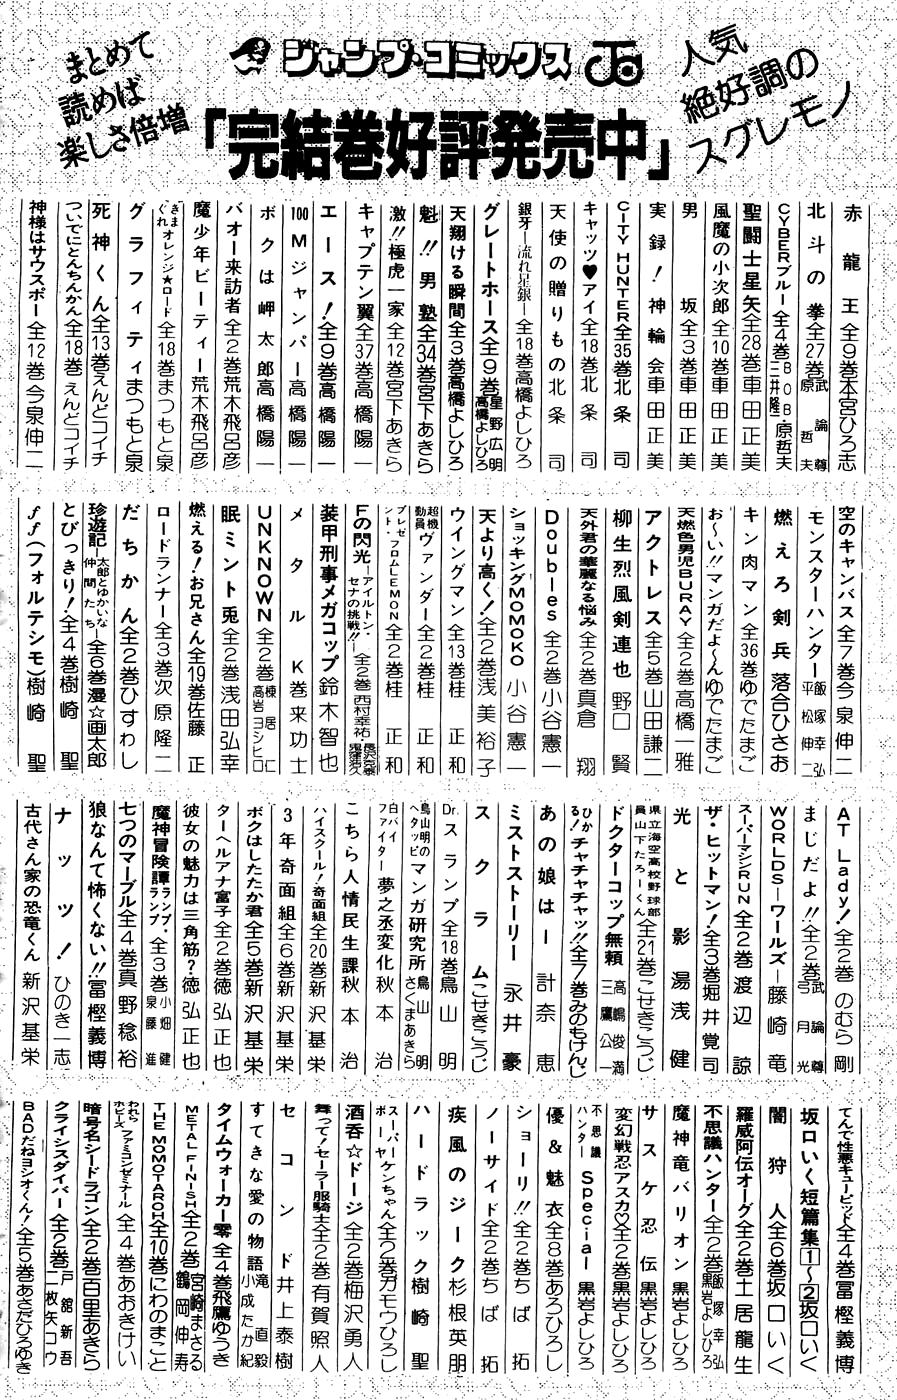 まとめて
読めば
楽しさ倍増
ジャンプ・コミックス
人気
絶好調の
スグレモノ
「完結巻好評発売中」
赤龍王 全9巻 本宮ひろ志
北斗の拳 全27巻 武論尊 原哲夫
CYBERブルー 全4巻 BOB 三井隆一 原哲夫
聖闘士星矢 全28巻 車田正美
風魔の小次郎 全10巻 車田正美
男坂 全3巻 車田正美
実録!神輪会 車田正美
CITY HUNTER 全35巻 北条司
キャッツ♥アイ 全18巻 北条司
天使の贈りもの 北条司
銀牙―流れ星 銀― 全18巻 高橋よしひろ
グレートホース 全9巻 星野広明 高橋よしひろ
天翔ける瞬間 全3巻 高橋よしひろ
魁!!男塾 全34巻 宮下あきら
激!!極虎一家 全12巻 宮下あきら
キャプテン翼 全37巻 高橋陽一
エース! 全9巻 高橋陽一
100Mジャンパー 高橋陽一
ボクは岬太郎 高橋陽一
バオー来訪者 全2巻 荒木飛呂彦
魔少年ビーティー 荒木飛呂彦
きまぐれオレンジ★ロード 全18巻 まつもと泉
グラフィティ まつもと泉
死神くん 全13巻 えんどコイチ
ついでにとんちんかん 全18巻 えんどコイチ
神様はサウスポー 全12巻 今泉伸二
空のキャンバス 全7巻 今泉伸二
モンスターハンター 飯塚幸弘 平松伸二
燃えろ剣兵 落合ひさお
キン肉マン 全36巻 ゆでたまご
お〜い!!マンガだよ〜ん ゆでたまご
天燃色男児BURAY 全2巻 高橋一雅
アクトレス 全5巻 山田謙二
柳生烈風剣連也 野口賢
天外君の華麗なる悩み 全2巻 真倉翔
Doubles 全2巻 小谷憲一
ショッキングMOMOKO 小谷憲一
天より高く! 全2巻 浅美裕子
ウイングマン 全13巻 桂正和
超機動員ヴァンダー 全2巻 桂正和
プレゼント・フロムLEMON 全2巻 桂正和
Fの閃光―アイルトン・セナの挑戦!!― 全2巻 西村幸祐
装甲刑事メガコップ 鈴木智也
メタルK 巻来功士
UNKNOWN 全2巻 棟居仁 高岩ヨシヒロ
眠兎 ミント 全2巻 浅田弘幸
燃える!お兄さん 全19巻 佐藤正
ロードランナー 全3巻 次原隆二
だちかん 全2巻 ひすわし
珍遊記―太郎とゆかいな仲間たち― 全6巻 漫☆画太郎
とびっきり! 全4巻 樹崎聖
ff(フォルテシモ) 樹崎聖
AT Lady! 全2巻 のむら剛
まじだよ!! 全2巻 武論尊 弓月光
WORLDS―ワールズ― 藤崎竜
スーパーマシンRUN 全2巻 渡辺諒
ザ・ヒットマン! 全3巻 堀井覚司
光と影 湯浅健
県立海空高校野球部員山下たろーくん 全21巻 こせきこうじ
ドクターコップ無頼 高嶋俊満 三鷹公一
ひかる!チャチャチャッ!! 全7巻 みのもけんじ
あの娘は― 計奈恵
ミストストーリー 永井豪
スクラム こせきこうじ
Dr.スランプ 全18巻 鳥山明
鳥山明のヘタッピマンガ研究所 鳥山明 さくまあきら
白バイファイター夢之丞変化 秋本治
こちら人情民生課 秋本治
ハイスクール!奇面組 全20巻 新沢基栄
3年奇面組 全6巻 新沢基栄
ボクはしたたか君 全5巻 新沢基栄
ターヘルアナ富子 全2巻 徳弘正也
彼女の魅力は三角筋? 徳弘正也
魔神冒険譚ランプ・ランプ 全3巻 小畑健 泉藤進
七つのマーブル 全4巻 真野稔裕
狼なんて怖くない!! 冨樫義博
ナッツ! ひのき一志
古代さん家の恐竜くん 新沢基栄
てんで性悪キューピッド 全4巻 冨樫義博
坂口いく短篇集1〜2 坂口いく
闇狩人 全6巻 坂口いく
羅威阿伝オーグ 全2巻 土居龍生
不思議ハンター 全2巻 飯塚幸弘 黒岩よしひろ
魔神竜バリオン 黒岩よしひろ
サスケ忍伝 黒岩よしひろ
変幻戦忍アスカ♡ 全2巻 黒岩よしひろ
不思議ハンターSpecial 黒岩よしひろ
優&魅衣 全8巻 あろひろし
ショーリ!! 全2巻 ちば拓
ノーサイド 全2巻 ちば拓
疾風のジーク 杉根英朋
ハードラック 樹崎聖
スーパーボーヤケンちゃん 全2巻 ガモウひろし
酒呑☆ドージ 全2巻 梅沢勇人
舞って!セーラー服騎士 全2巻 有賀照人
セコンド 井上泰樹
すてきな愛の物語 滝直毅 小成たか紀
タイムウォーカー零 全4巻 飛鷹ゆうき
METAL FINISH 全2巻 宮崎まさる 鶴岡伸寿
THE MOMOTAROH 全10巻 にわのまこと
われらホビーズファミコンゼミナール 全4巻 あおきけい
暗号名シードラゴン 全2巻 百里あきら
クライシスダイバー 全2巻 戸舘新吾 二枚矢コウ
BADだねヨシオくん! 全5巻 あさだひろゆき